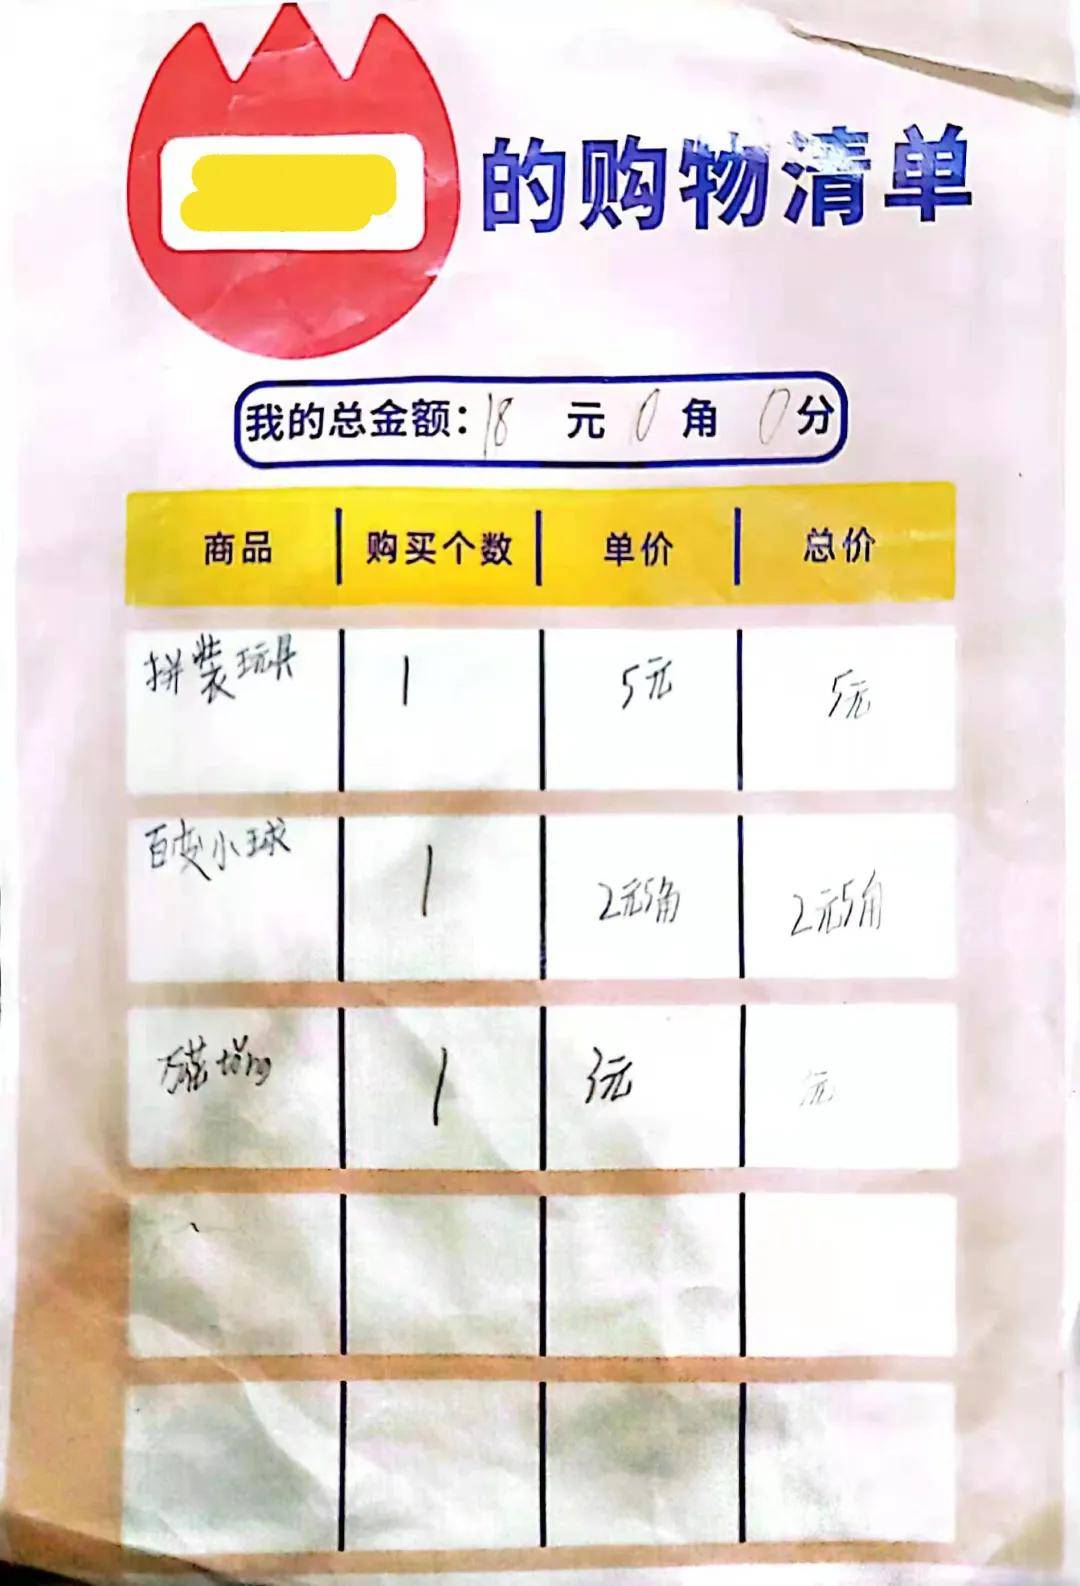 的购物清单
我的总金额：18 元 0 角 0 分
商品 购买个数 单价 总价
拼装玩具 1 5元 5元
百变小球 1 2元5角 2元5角
1 元 元